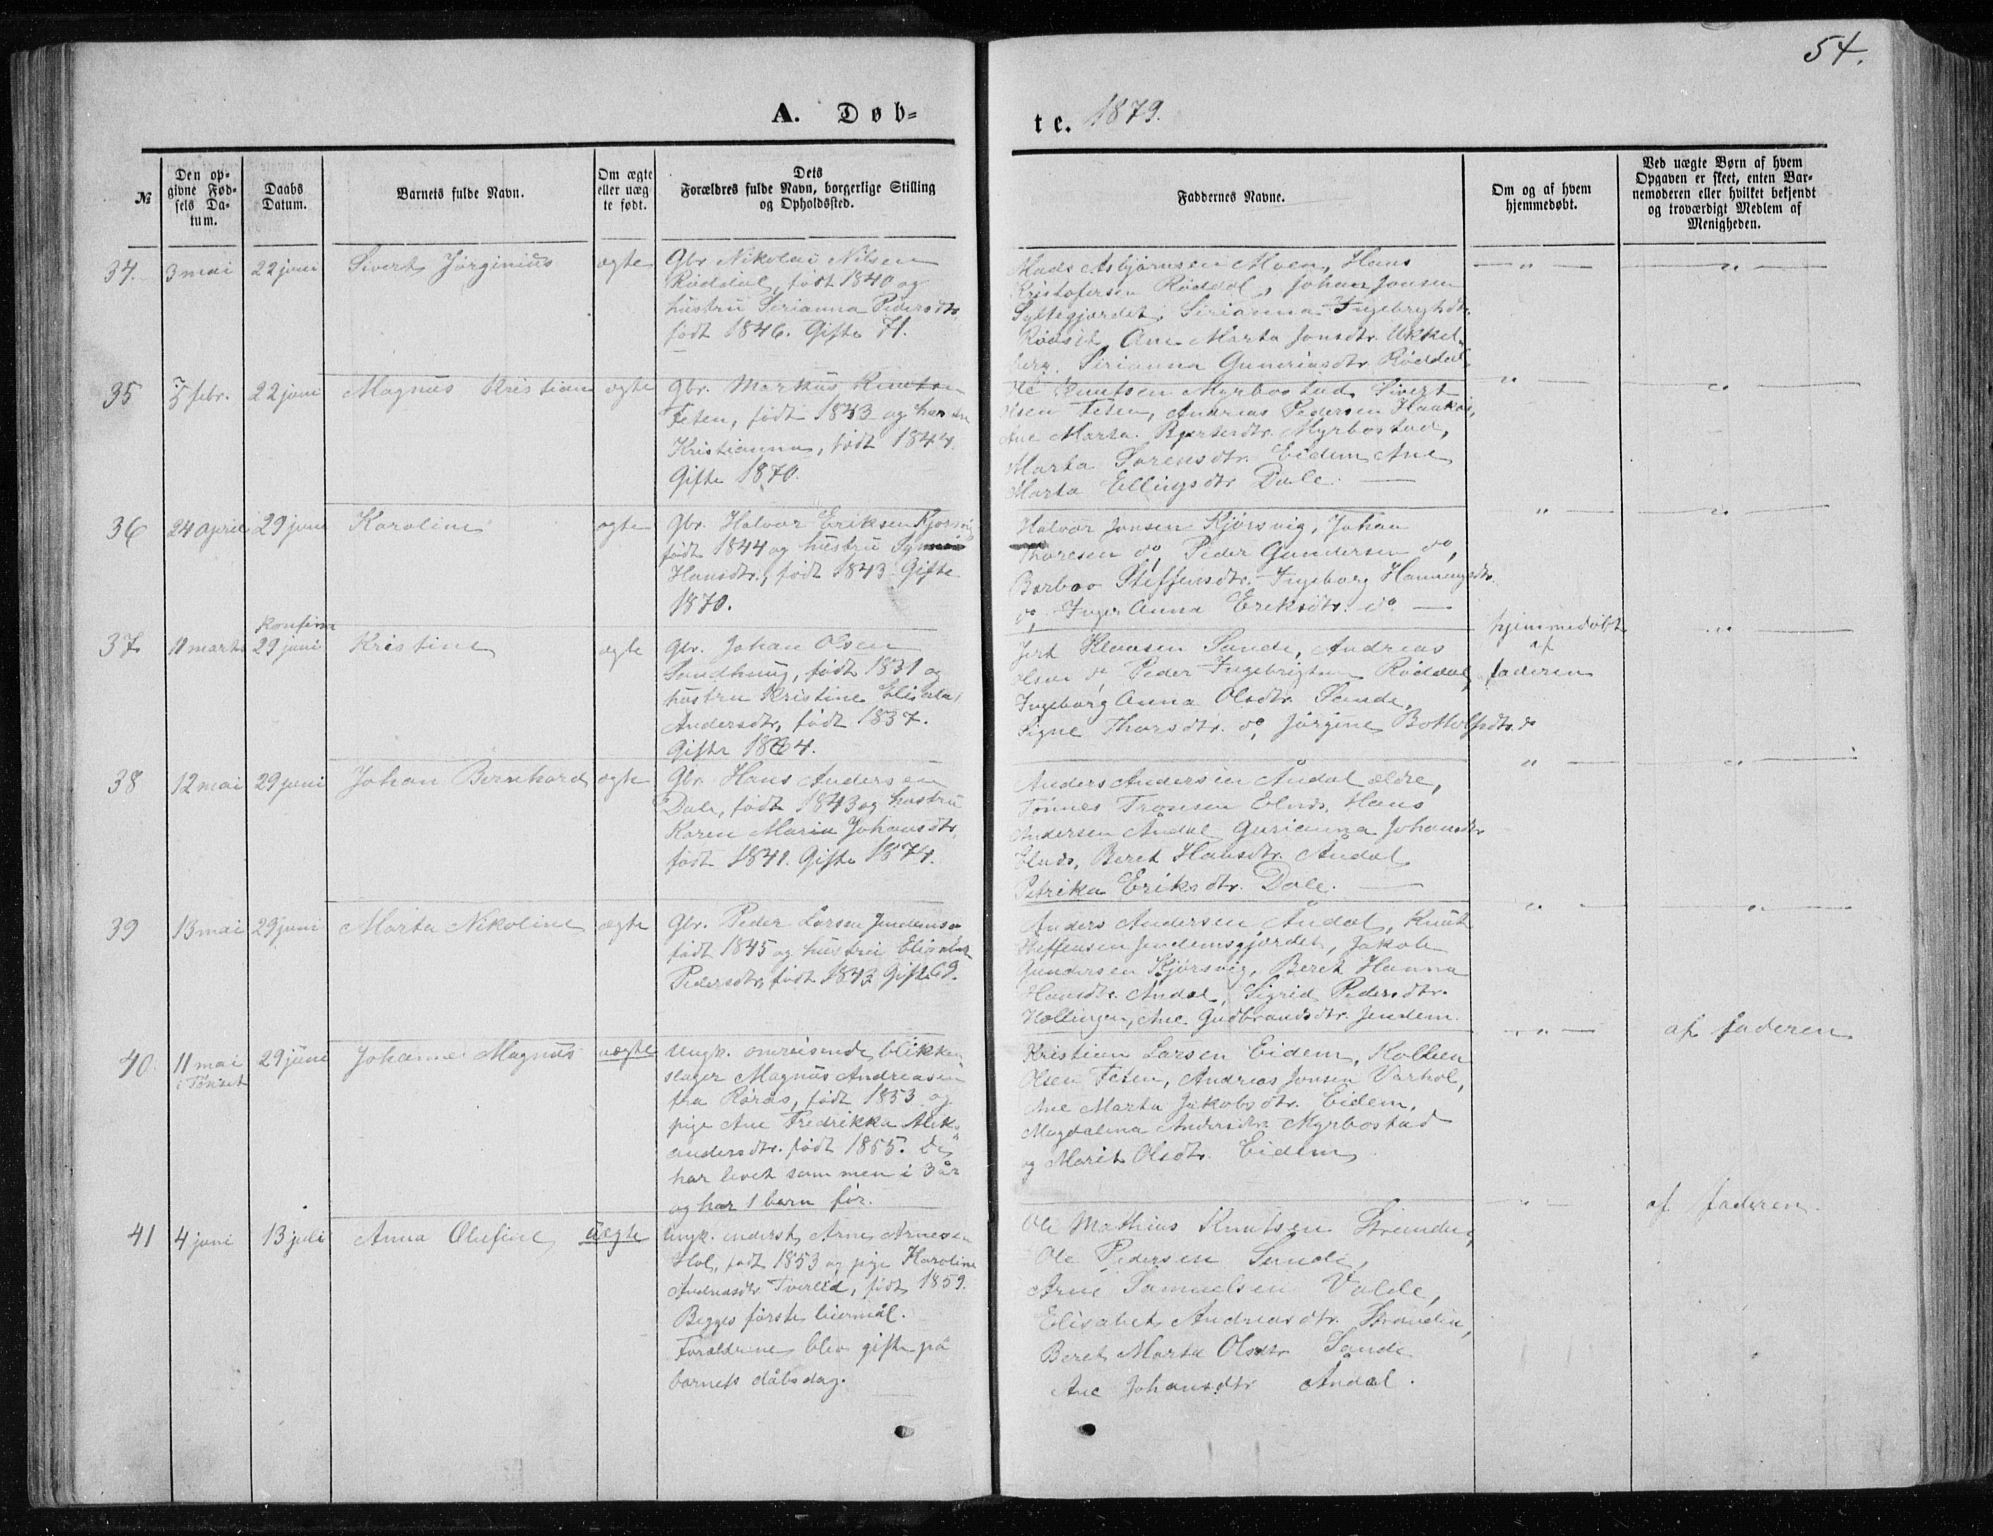 54.
A. Døb=
te. 1879.
№
Den op-
givne Fød-
sels Da-
tum.
Daabs
Datum.
Barnets fulde Navn.
Om ægte
eller uæg
te født.
Dets
Forældres fulde Navn, borgerlige Stilling
og Opholdssted.
Faddernes Navne.
Om og af hvem
hjemmedøbt.
Ved uægte Børn af hvem
Opgaven er skeet, enten Bar-
nemoderen eller hvilket bekjendt
og troværdigt Medlem af
Menigheden.
34. 3 mai 22 juni Sivert Jørginius ægte
Gbr. Nikolai Nilsen
Røddal, født 1840 og
hustru Serianna Pedersdtr.
født 1846. Gifte 71.
Mads Asbjørnsen Moen, Hans
Kristofersen Røddal, Johan Jonsen
Syltegjærdet, Serianna Ingebrigtsdtr.
Rødset, Ane Marta Jonsdtr. Ukkel-
berg, Serianna Røddal
" "
35 5 febr. 22 juni Magnus Kristian ægte
Gbr. Markus Knutsen
Feten, født 1843 og
Kristianna, født 1844.
Gifte 1870.
Ole Knutsen Myrbostad, Sivert
Olsen Feten, Andreas Pedersen
Ane Marta Myrbostad,
Marta Sørensdtr. Eidem, Ane
Marta Ellingsdtr. Dale.
" "
36 24 april 29 juni Karoline ægte
Gbr. Halvor Eriksen Kjørsvig
født 1844 og hustru
Hansdtr., født 1843. Gifte
1870.
Halvor Jonsen Kjørsvig, Johan
Thoresen do, Peder Gundersen do,
Barbro Steffensdtr. Ingeborg Henningsdtr.
do, Inger Anna Eriksdtr. do
" "
37 11 marts konfirm. 29 juni Kristine ægte
Gbr. Johan Olsen
Sandhaug, født 1831 og
hustru Kristine Elisabet
Andersdtr, født 1837.
Gifte 1864.
Klausen Sande, Andreas
Olsen do, Peder Ingebrigtsen Røddal,
Ingeborg Anna Olsdtr. Sande,
Signe Thorsdtr. do, Jørgine Bottolfsdtr. do
hjemmedøbt
af
faderen
"
38 12 mai 29 juni Johan Bernhard ægte
Gbr. Hans Andersen
Dale, født 1843 og hustru
Karen Maria Johansdtr.
født 1841. Gifte 1874.
Anders Andersen Åndal ældre,
Tønnes Tronsen Elnes, Hans
Andersen Åndal, Gurianna Johansdtr.
Elnes, Beret Hansdtr. Åndal
Petrika Eriksdtr. Dale.
" "
39 13 mai 29 juni Marta Nikoline ægte
Gbr. Peder Larsen
født 1845 og hustru Elisabet
Pedersdtr, født 1843. Gifte 69.
Anders Andersen Åndal, Knut
Steffensen Jendemsgjærdet, Jakob
Gundersen Kjørsvig, Beret Hanna
Hansdtr. Åndal, Sigrid Pedersdtr.
Hollingen, Ane Gudbrandsdtr. Jendem.
" "
40. 11 mai i Tønset 29 juni Johannes Magnus uægte
Ungk. omreisende blikken
slager Magnus Andreasen
fra Røros, født 1853 og
pige Ane Fredrikka Aleks-
andersdtr. født 1855. De
har levet sammen i 3 år
og har 1 barn før.
Kristian Larsen Eidem, Kolbein
Olsen Feten, Andreas Jonsen Varhol,
Ane Marta Jakobsdtr. Eidem,
Magdalena Andersdtr. Myrbostad
og Marit Olsdtr. Eidem
" af faderen
41 4 juni 13 juli Anna Olufine uægte
Ungk. inderst Arne Arnesen
Hol, født 1853 og pige Karoline
Andreasdtr. Tverlid, født 1859.
Begges første leiermål.
Forældrene blev gifte på
barnets dåbsdag.
Ole Mathias Knutsen Stranden,
Ole Pedersen Sande,
Arne Samuelsen Valde,
Elisabet Andreasdtr. Stranden,
Beret Marta Olsdtr. Sande
Ane Johansdtr. Åndal.
" af faderen.